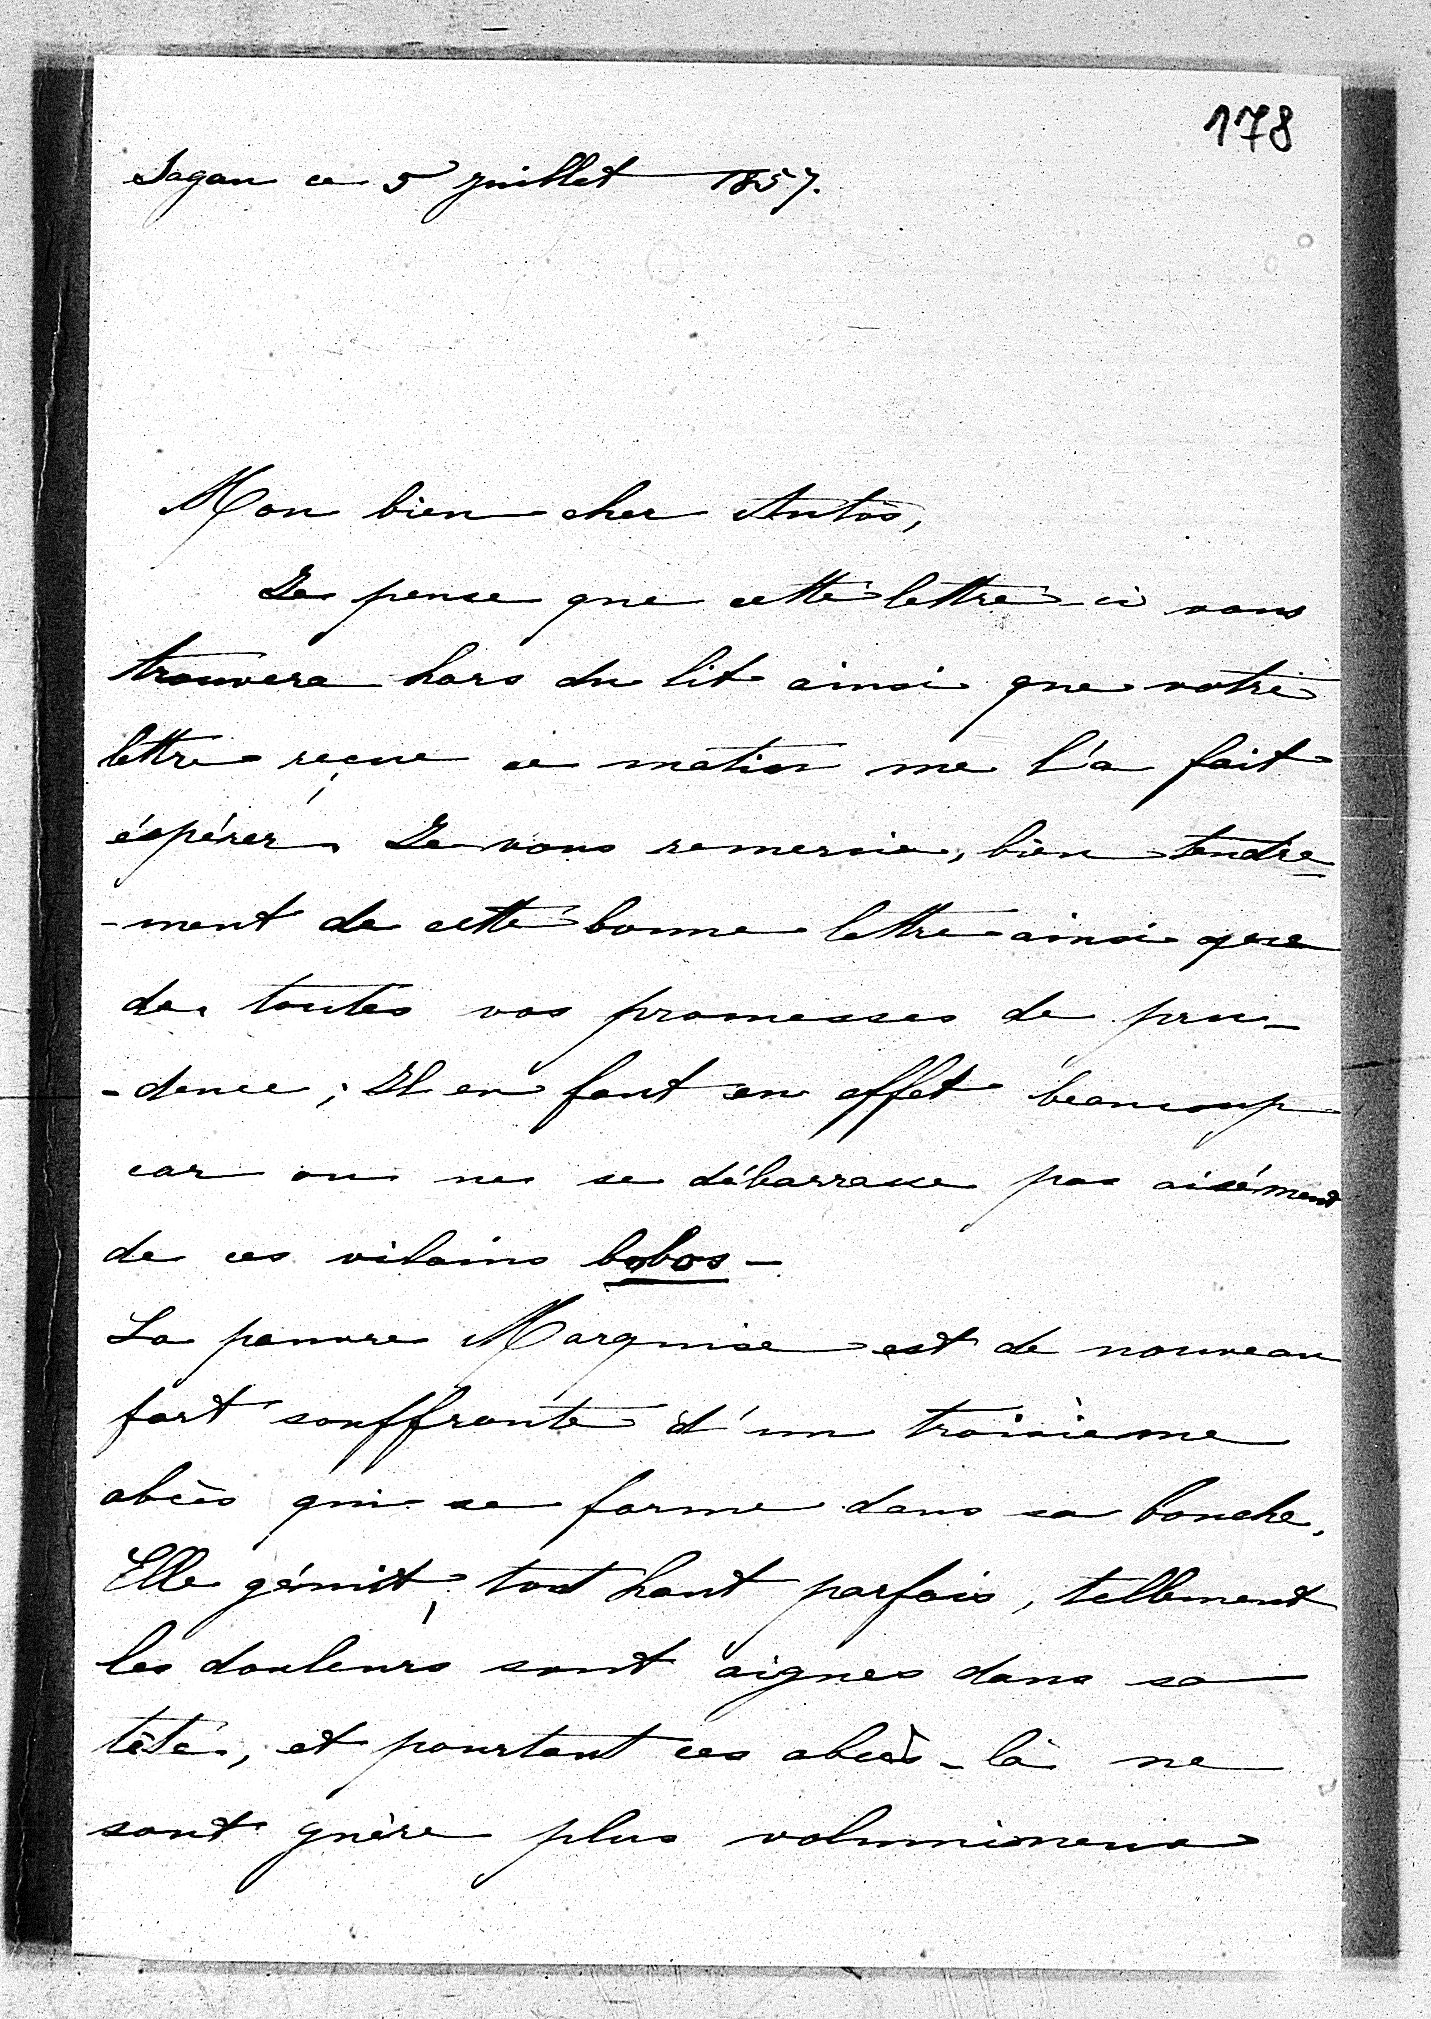 178
Sagan ce 5 juillet 1857.
Mon bien cher Antos,
Je pense que cette lettre-ci vous
trouvera hors du lit ainsi que votre
lettre reçue ce matin me l'a fait
éspérer. Je vous remercie, bien tendre-
-ment de cette bonne lettre ainsi que
de toutes vos promesses de pru-
-dence; Il en faut en effet beaucoup
car on ne se débarrasse pas aisément
de ces vilains bobos -
La pauvre Marquise est de nouveau
fort souffrante d'un troisième
abcès qui se forme dans sa bouche.
Elle gémit, tout haut parfois, tellement
les douleurs sont aigues dans sa
tête, et pourtant ces abcès-là ne
sont guère plus volumineux